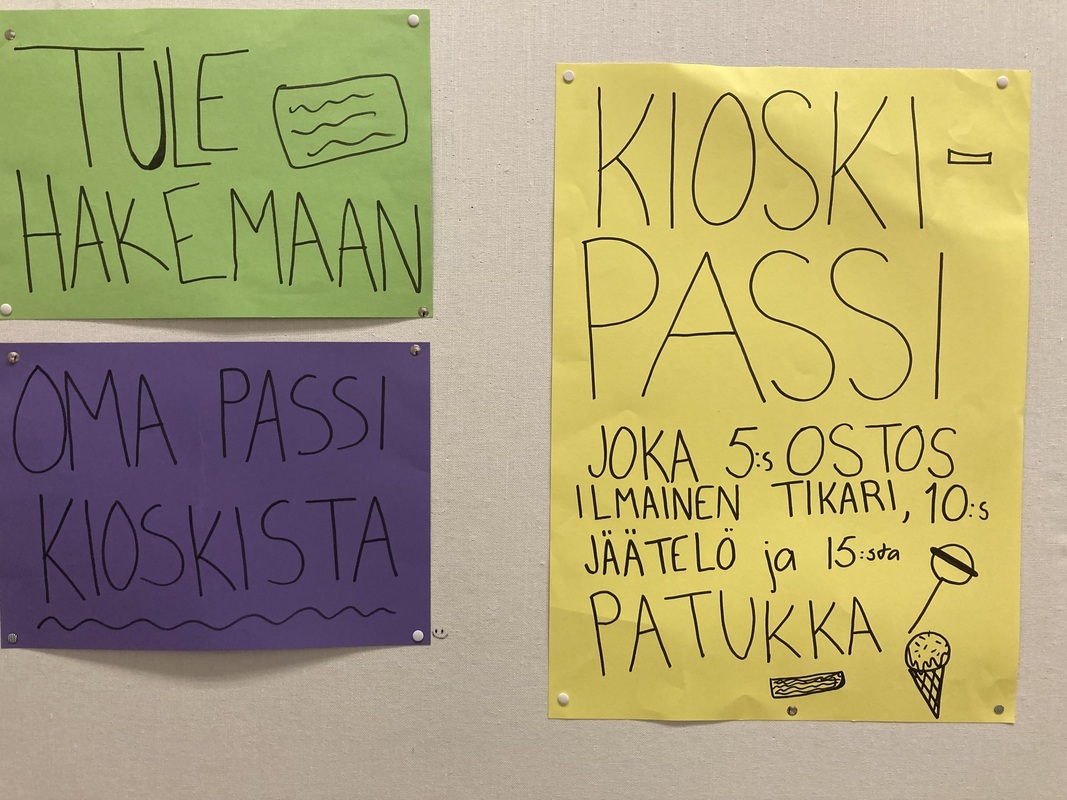 TULE
HAKEMAAN
OMA PASSI
KIOSKISTA
KIOSKI-
PASSI
JOKA 5:s OSTOS
ILMAINEN TIKARI, 10:s
JÄÄTELÖ ja 15:sta
PATUKKA